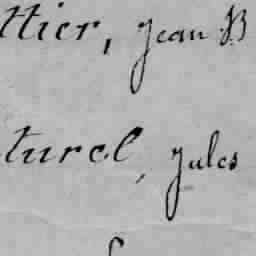 ttier, Jean B
turel, Jules